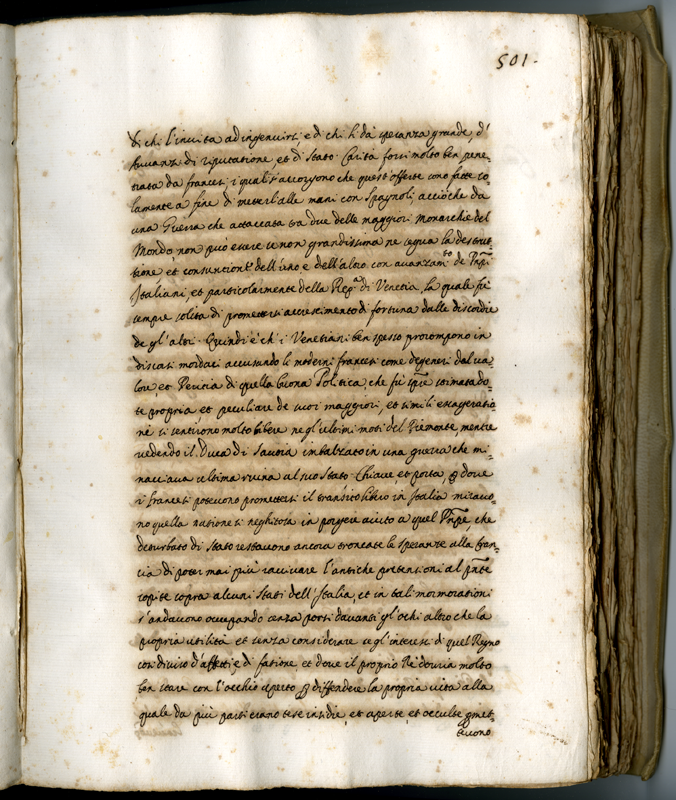 501.
di chi l'invita ad ingenuirsi, e di chi li dà speranza grande, d'
avvanzi di riputatione, et di Stato. Carità forsi molto ben pene¬
trata da francesi, i quali s'accorgono che quest'offerte sono fatte so¬
lamente a fine di meterli alle mani con Spagnoli, acciòche da
una Guerra che attaccata tra due delle maggiori Monarchie del
Mondo, non può essere se non grandissima ne segua la destrut¬
tione et consuntione dell'uno e dell'altro con avanzam.to de Prñpi
Italiani, et particolarmente della Rep.a di Venetia, la quale fù
sempre solita di prometersi accrescimento di fortuna dalle discordie
de gl'altri. Quindi è ch'i Venetiani ben spesso prorompono in
discorsi mordaci accusando li moderni francesi come degeneri dal va¬
lore, et Peritia di quella buona Politica, che fù spre stimata do¬
te propria, et peculiare de suoi maggiori, et simili essageratio¬
ni si sentirono molto libere ne gl'ultimi moti del Piemonte, mentre
vedendo il Duca di Savoia imbalzato in una guerra che mi¬
nacciava ultima ruina al suo Stato Chiave et porta, p dove
i francesi potevono promettersi il transito libro in Italia miravo¬
no quella natione sì neghitosa in porgere aiuto a quel Prñpe, che
deturbato di Stato restavono ancora troncate le speranze alla fran¬
cia di poter mai più ravvivare l'antiche pretentioni al pñte
sopite sopra alcuni Stati dell'Italia, et in tali mormorationi
s'andavono occupando senza porsi davanti gl'ochi altro che la
propria utilità et senza considerare se gl'interessi di quel Regno
con diviso d'affetti, e di fatione, et dove il proprio Rè douria molto
ben stare con l'occhio aperto p diffendere la propria vita alla
quale da più parti erano tese insidie, et aperte, et occulte pmet¬
tevono